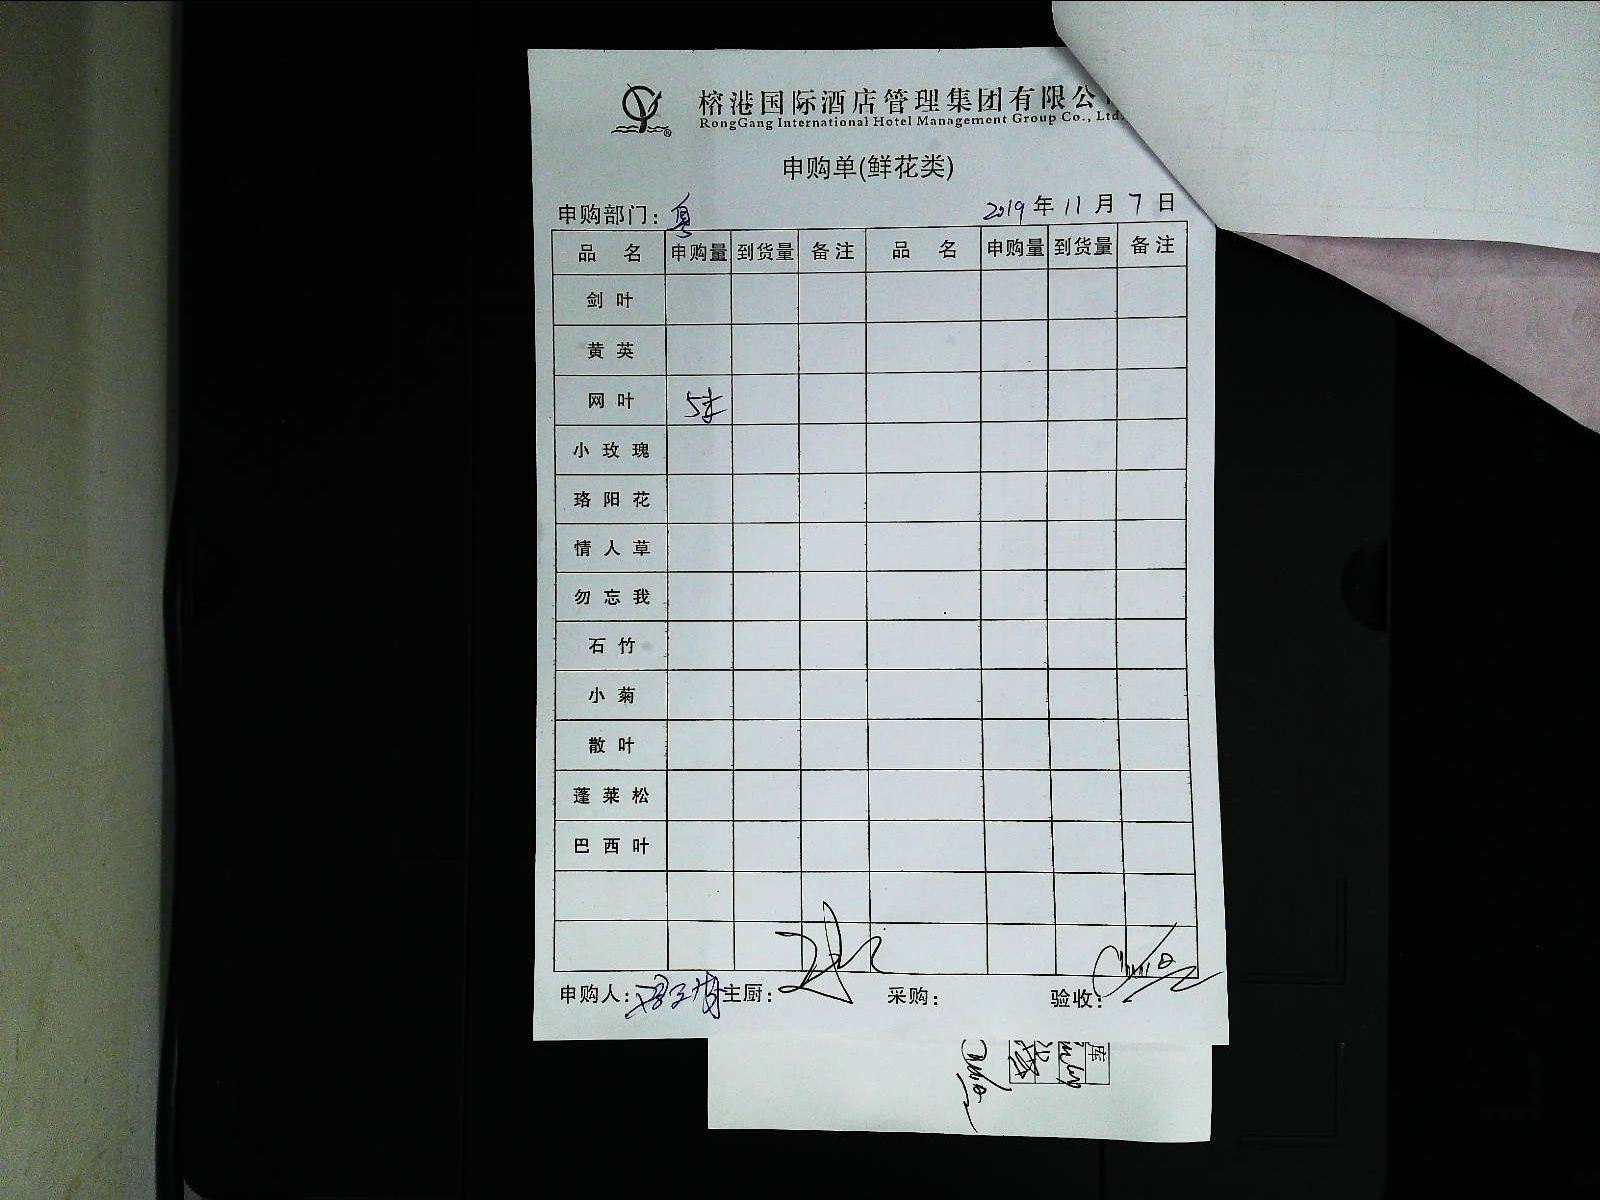 榕港国际酒店管理集团有限公
RongGang International Hotel Management Group Co., Ltd.
申购单(鲜花类)
申购部门：粤 2019年11月7日
品名 申购量 到货量 备注 品名 申购量 到货量 备注
剑叶
黄英
网叶 5扎
小玫瑰
珞阳花
情人草
勿忘我
石竹
小菊
散叶
蓬莱松
巴西叶
申购人： 主厨： 采购： 验收：
库